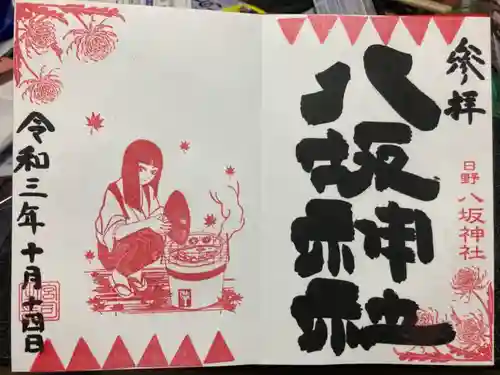 参拝
八坂神社
日野 八坂神社
令和三年十月十四日